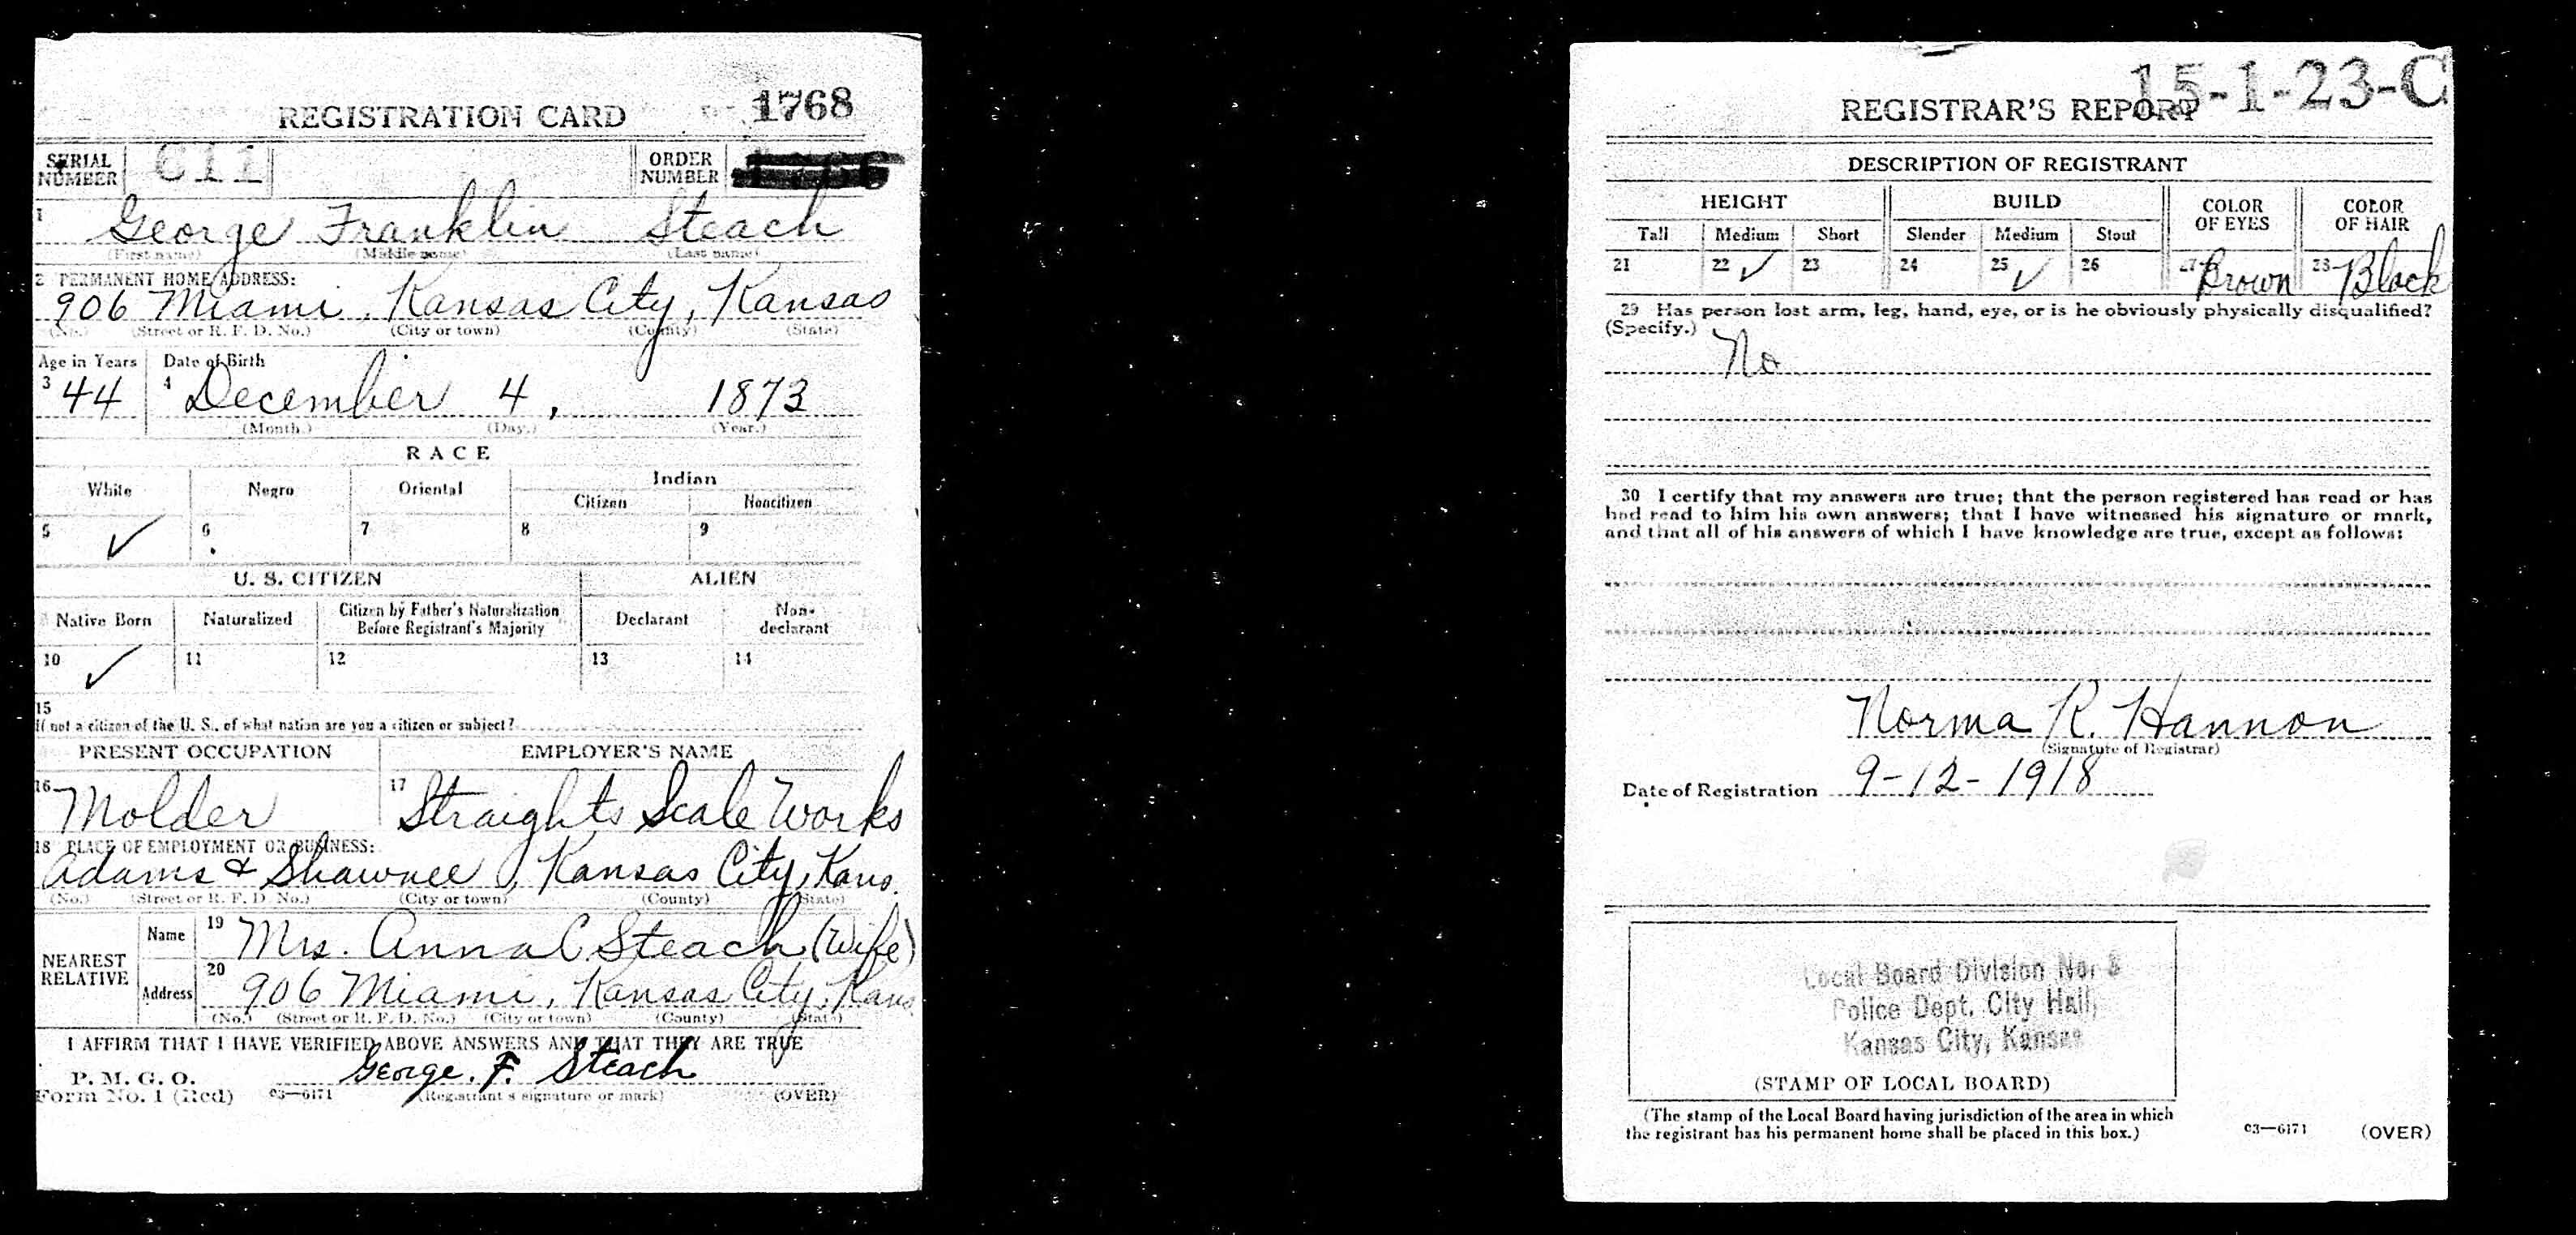 REGISTRATION CARD 1768
SERIAL NUMBER 611 ORDER NUMBER
1 George Franklin Steach
(First name) (Middle name) (Last name)
2 PERMANENT HOME ADDRESS:
906 Miami, Kansas City, Kansas
(No.) (Street or R. F. D. No.) (City or town) (County) (State)
Age in Years Date of Birth
3 44 4 December 4, 1873
(Month.) (Day.) (Year.)
RACE
White Negro Oriental Indian
Citizen Noncitizen
5 ✓ 6 7 8 9
U. S. CITIZEN ALIEN
Native Born Naturalized Citizen by Father's Naturalization Before Registrant's Majority Declarant Non-declarant
10 ✓ 11 12 13 14
15
If not a citizen of the U. S., of what nation are you a citizen or subject?
PRESENT OCCUPATION EMPLOYER'S NAME
16 Molder 17 Straights Scale Works
18 PLACE OF EMPLOYMENT OR BUSINESS:
Adams & Shawnee, Kansas City, Kans.
(No.) (Street or R. F. D. No.) (City or town) (County) (State)
NEAREST RELATIVE
Name 19 Mrs. Anna C Steach (Wife)
Address 20 906 Miami, Kansas City, Kans
(No.) (Street or R. F. D. No.) (City or town) (County) (State)
I AFFIRM THAT I HAVE VERIFIED ABOVE ANSWERS AND THAT THEY ARE TRUE
P. M. G. O.
Form No. 1 (Red) 03—6171 George. F. Steach
(Registrant's signature or mark) (OVER)
15-1-23-C
REGISTRAR'S REPORT
DESCRIPTION OF REGISTRANT
HEIGHT BUILD COLOR OF EYES COLOR OF HAIR
Tall Medium Short Slender Medium Stout
21 22 ✓ 23 24 25 ✓ 26 27 Brown 28 Black
29 Has person lost arm, leg, hand, eye, or is he obviously physically disqualified?
(Specify.) No
30 I certify that my answers are true; that the person registered has read or has
had read to him his own answers; that I have witnessed his signature or mark,
and that all of his answers of which I have knowledge are true, except as follows:
Norma R. Hannon
(Signature of Registrar)
Date of Registration 9-12-1918
Local Board Division No. 3
Police Dept. City Hall,
Kansas City, Kansas
(STAMP OF LOCAL BOARD)
(The stamp of the Local Board having jurisdiction of the area in which
the registrant has his permanent home shall be placed in this box.)
03—6171 (OVER)